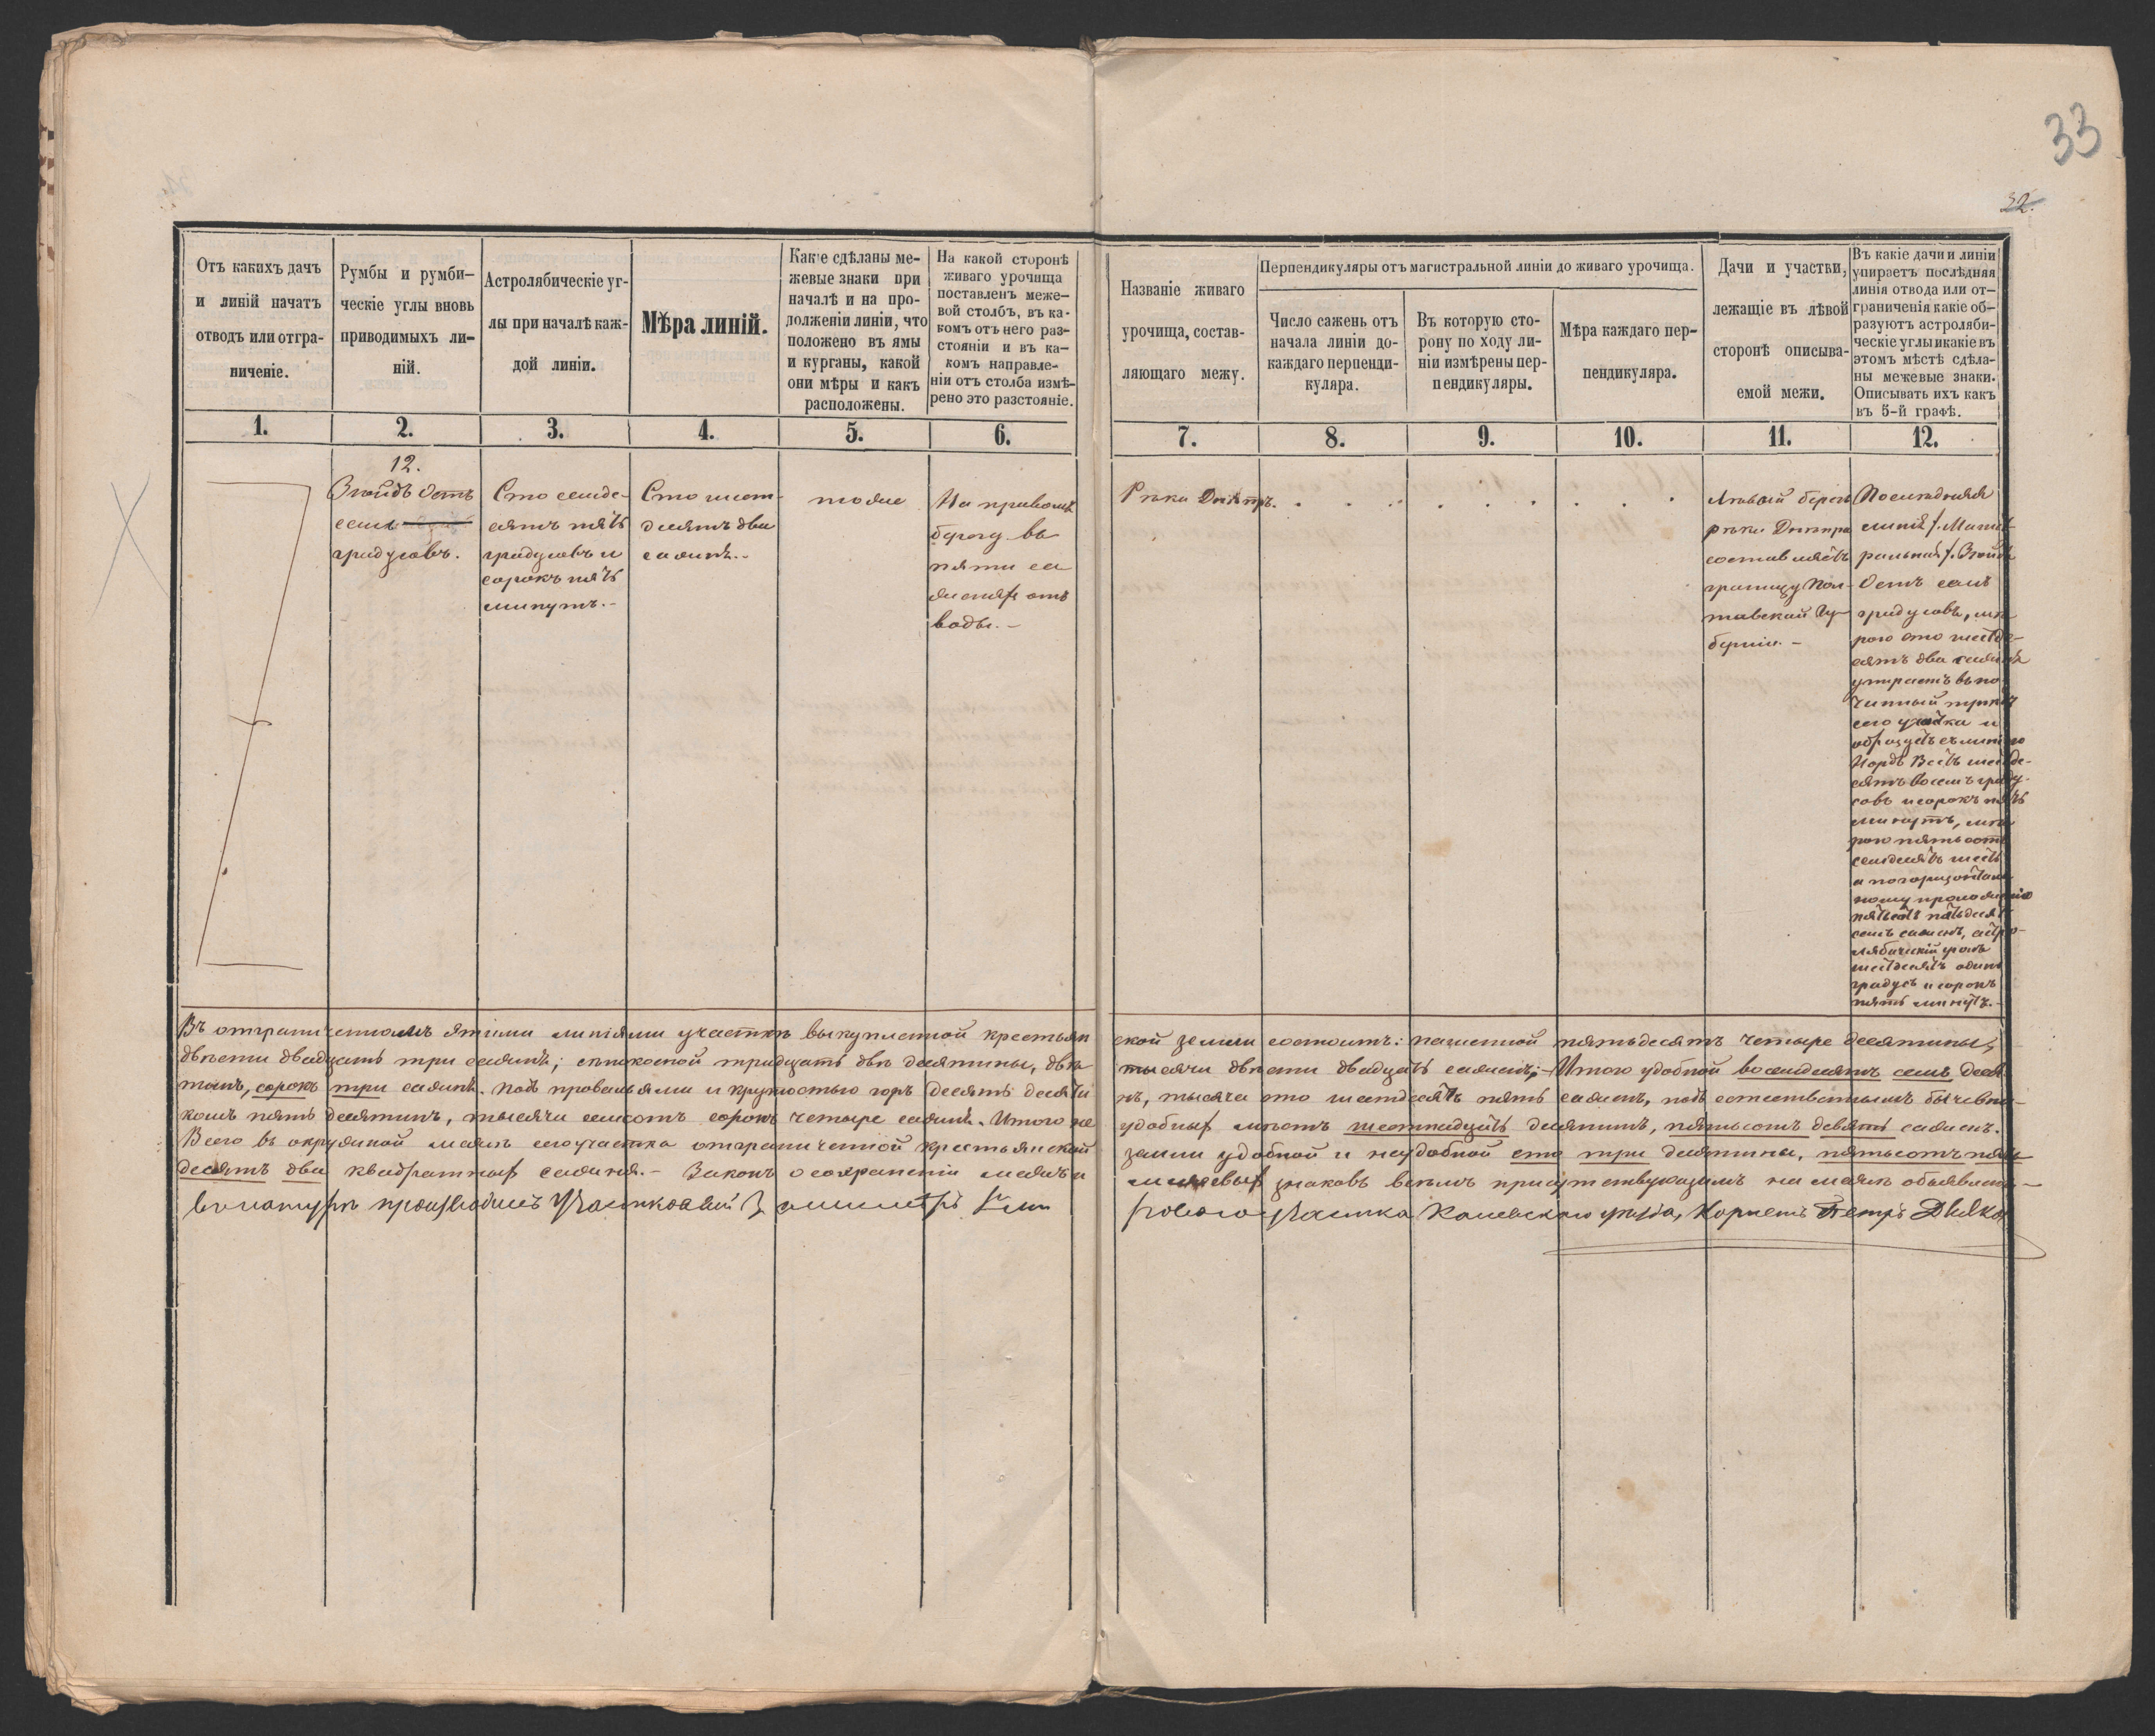 33
32.
Отъ какихъ дачъ
и линій начатъ
отводъ или отгра-
ниченіе.
Румбы и румби-
ческіе углы вновь
приводимыхъ ли-
ній.
Астролябическіе уг-
лы при началѣ каж-
дой линіи.
Мѣра линій.
Какіе сдѣланы ме-
жевые знаки при
началѣ и на про-
долженіи линіи, что
положено въ ямы
и курганы, какой
они мѣры и какъ
расположены.
На какой сторонѣ
живаго урочища
поставленъ меже-
вой столбъ, въ ка-
комъ отъ него раз-
стояніи и въ ка-
комъ направле-
ніи отъ столба измѣ-
рено это разстояніе.
Названіе живаго
урочища, состав-
ляющаго межу.
Перпендикуляры отъ магистральной линіи до живаго урочища.
Число сажень отъ
начала линіи до-
каждаго перпенди-
куляра.
Въ которую сто-
рону по ходу ли-
ніи измѣрены пер-
пендикуляры.
Мѣра каждаго пер-
пендикуляра.
Дачи и участки,
лежащіе въ лѣвой
сторонѣ описыва-
емой межи.
Въ какіе дачи и линіи
упираетъ послѣдняя
линія отвода или от-
граниченія какіе об-
разуютъ астроляби-
ческіе углы и какіе въ
этомъ мѣстѣ сдѣла-
ны межевые знаки.
Описывать ихъ какъ
въ 5-й графѣ.
1. 2. 3. 4. 5. 6. 7. 8. 9. 10. 11. 12.
12.
Зюйдъ Остъ
семь
градусовъ.
Сто семьде-
сятъ пять
градусовъ и
сорокъ пять
минутъ.-
Сто шест-
десятъ два
сажень.-
тоже
На правомъ
берегу въ
пяти са
женях отъ
воды.-
Рѣка Днѣпръ.
Лѣвый берегъ
рѣки Днѣпра
составляетъ
границу Пол-
тавской Гу-
берніи.-
Послѣдняя
линія /. Магист
ральная /. Зюйдъ
Остъ семь
градусовъ, мѣ
рою сто шестьде-
сятъ два сажень
упираетъ въ по
чинный пунктъ
сего участка и
образуетъ съ линіею
Нордъ Вестъ шестьде-
сятъ восемь граду-
совъ и сорокъ пять
минутъ, мѣ
рою пятьсотъ
семьдесятъ шесть
а по горизонталь
ному проложенію
пятьсотъ пятьдесятъ
семь сажень, астро-
лябическій уголъ
шестьдесятъ одинъ
градусъ и сорокъ
пять минутъ.-
Въ отграниченномъ этими линіями участкѣ выкупленной крестьян ской земли состоитъ: пашенной пятьдесятъ четыре десятины,
двѣсти двадцать три сажень; сѣнокосной тридцать двѣ десятины, двѣ тысячи двѣсти двадцать сажень;- Итого удобной восемьдесятъ семь деся
тинъ, сорокъ три сажень. Подъ проваліями и крутостью горъ десять десяти нъ, тысяча сто шестьдесятъ пять сажень, подъ естественнымъ бичевни-
комъ пять десятинъ, тысяча семьсотъ сорокъ четыре сажень. Итого не удобныхъ мѣстъ шестнадцать десятинъ, пятьсотъ девять сажень.
Всего въ окружной межѣ сего участка отграниченной крестьянской земли удобной и неудобной сто три десятины, пятьсотъ пять
десятъ два квадратныхъ сажня.- Законъ о сохраненіи межъ и межевыхъ знаковъ всѣмъ присутствующимъ на межѣ объявленъ.-
въ натурѣ производилъ Участковый Землемѣръ
Участка Каневскаго уѣзда, Корнетъ Петръ